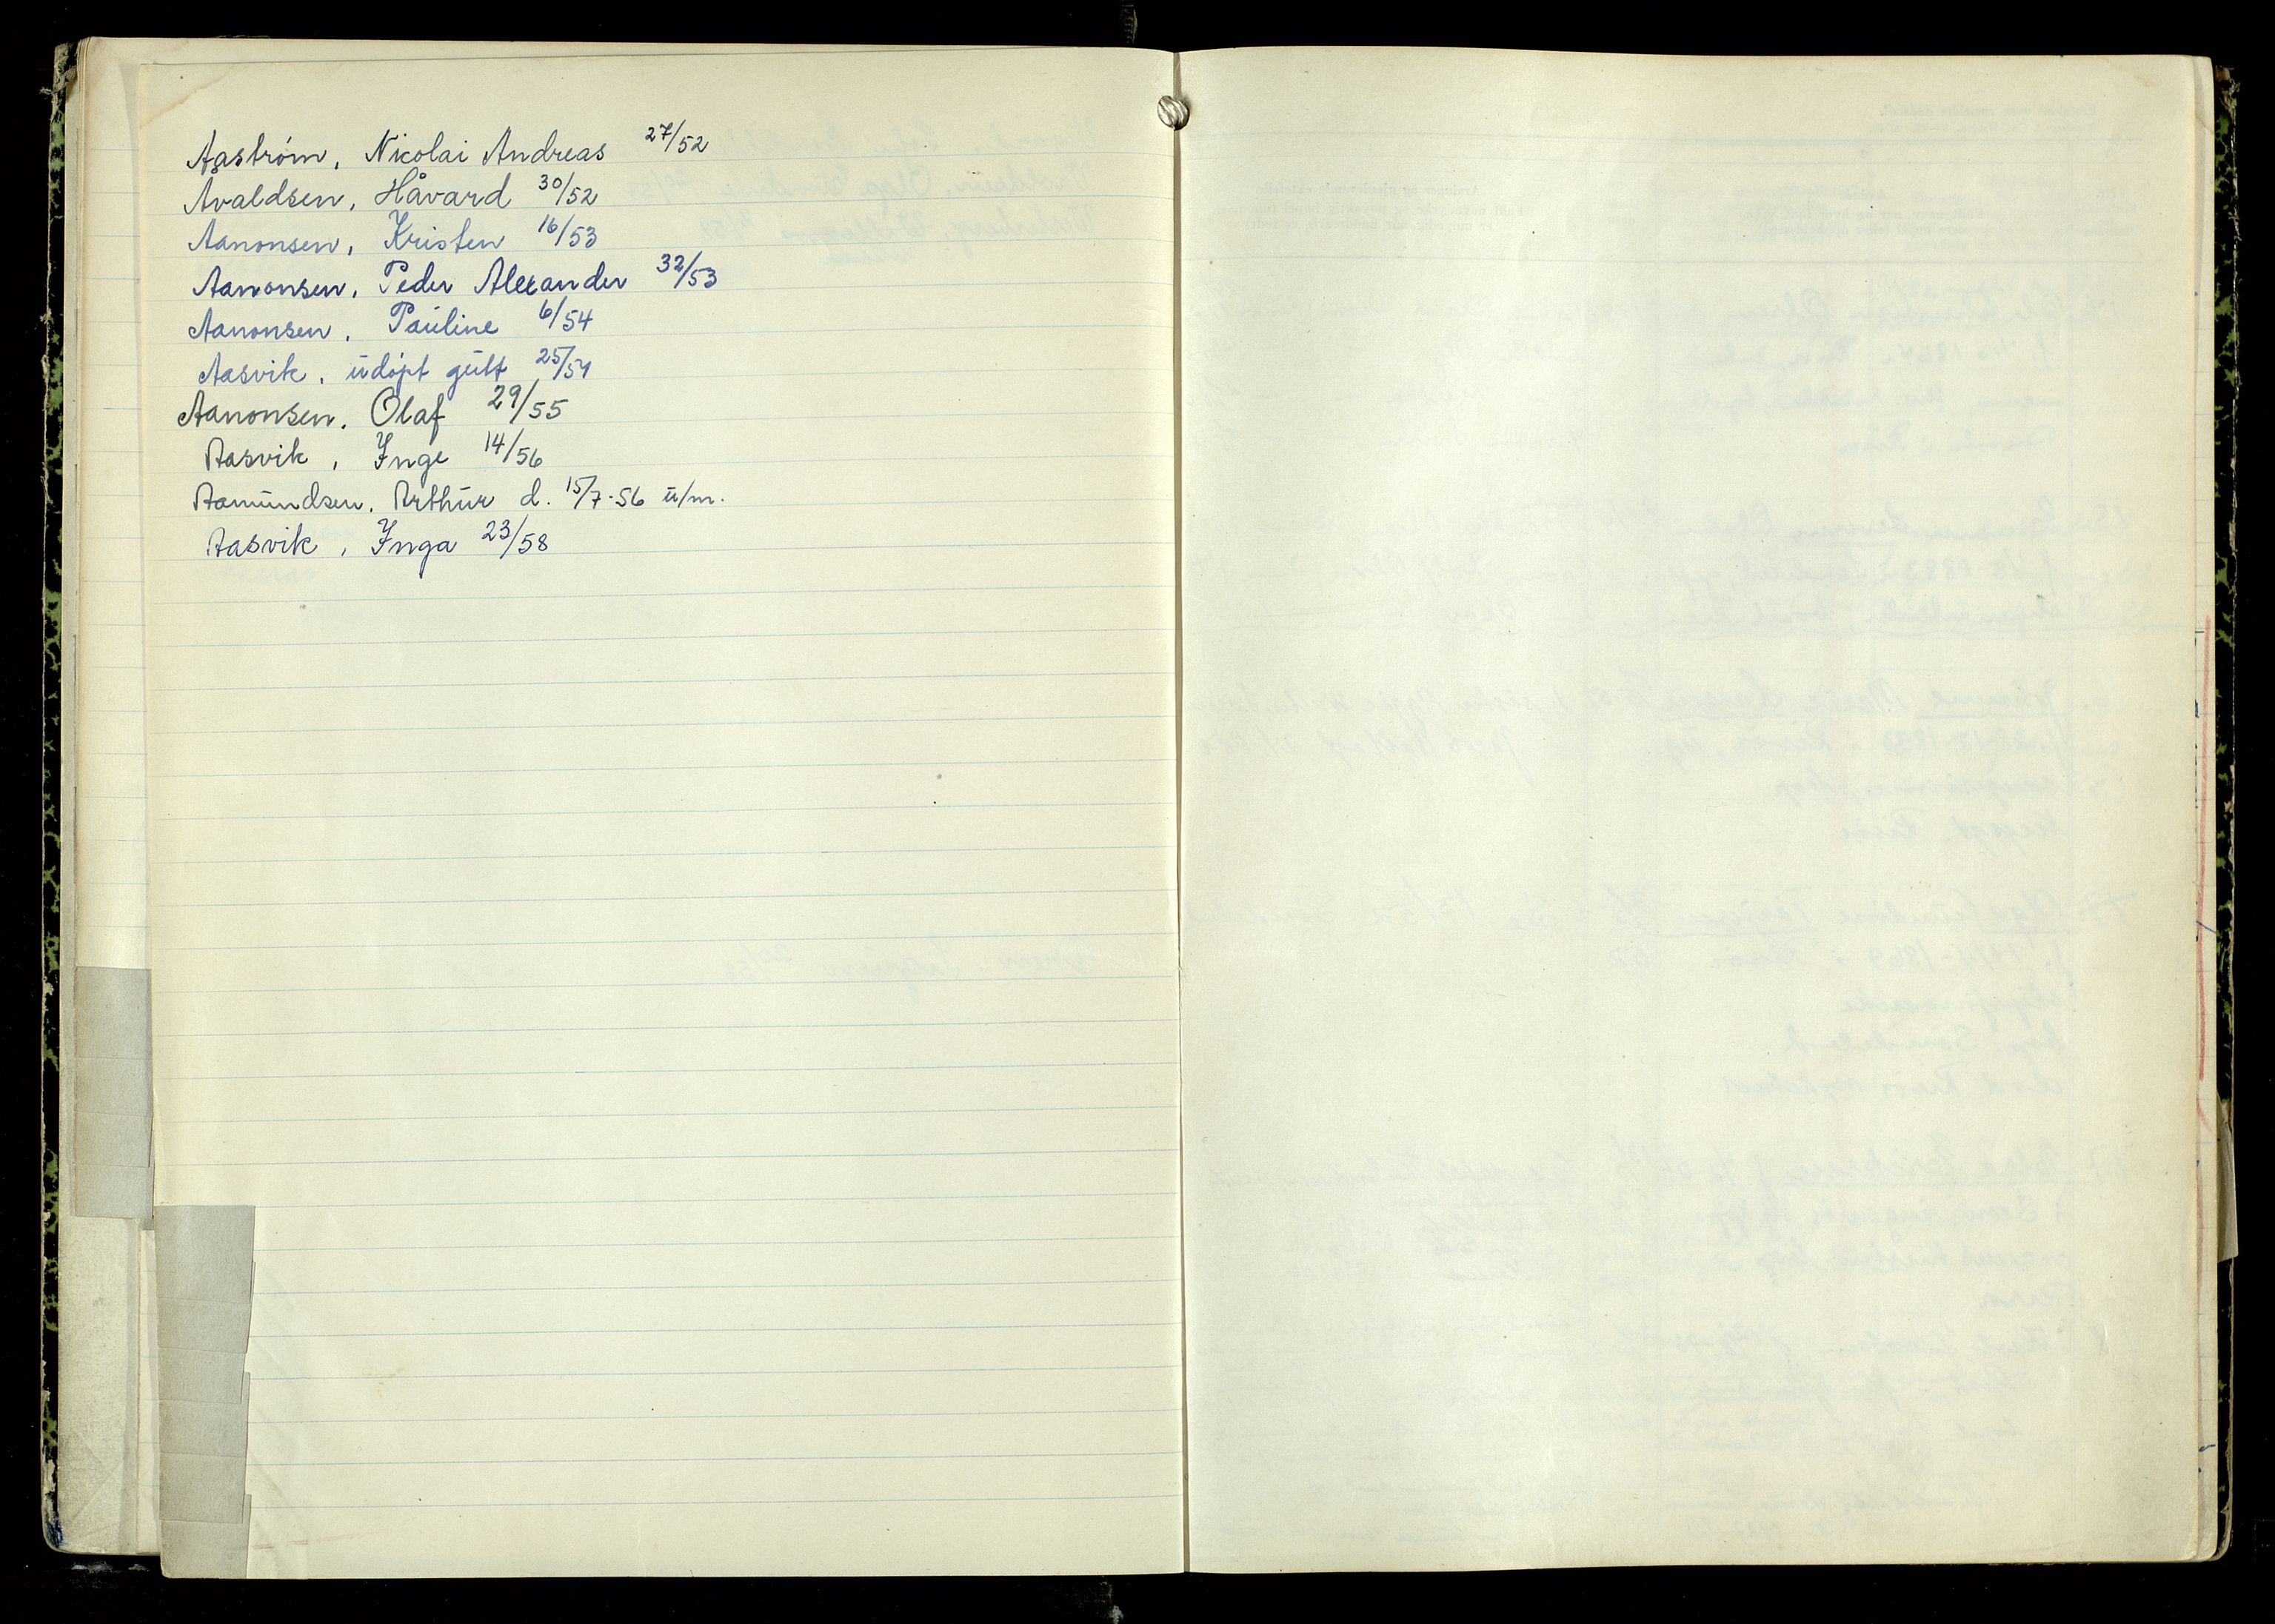 Aaström, Nicolai Andreas 27/52
Åvaldsen, Håvard 30/52
Aanonsen, Kristen 16/53
Aanonsen, Peder Alexander 32/53
Aanonsen, Pauline 6/54
Aasvik, udöpt gutt 25/54
Aanonsen, Olaf 29/55
Aasvik, Inge 14/56
Aamundsen, Arthur d. 15/7-56 u/m.
Aasvik, Inga 23/58